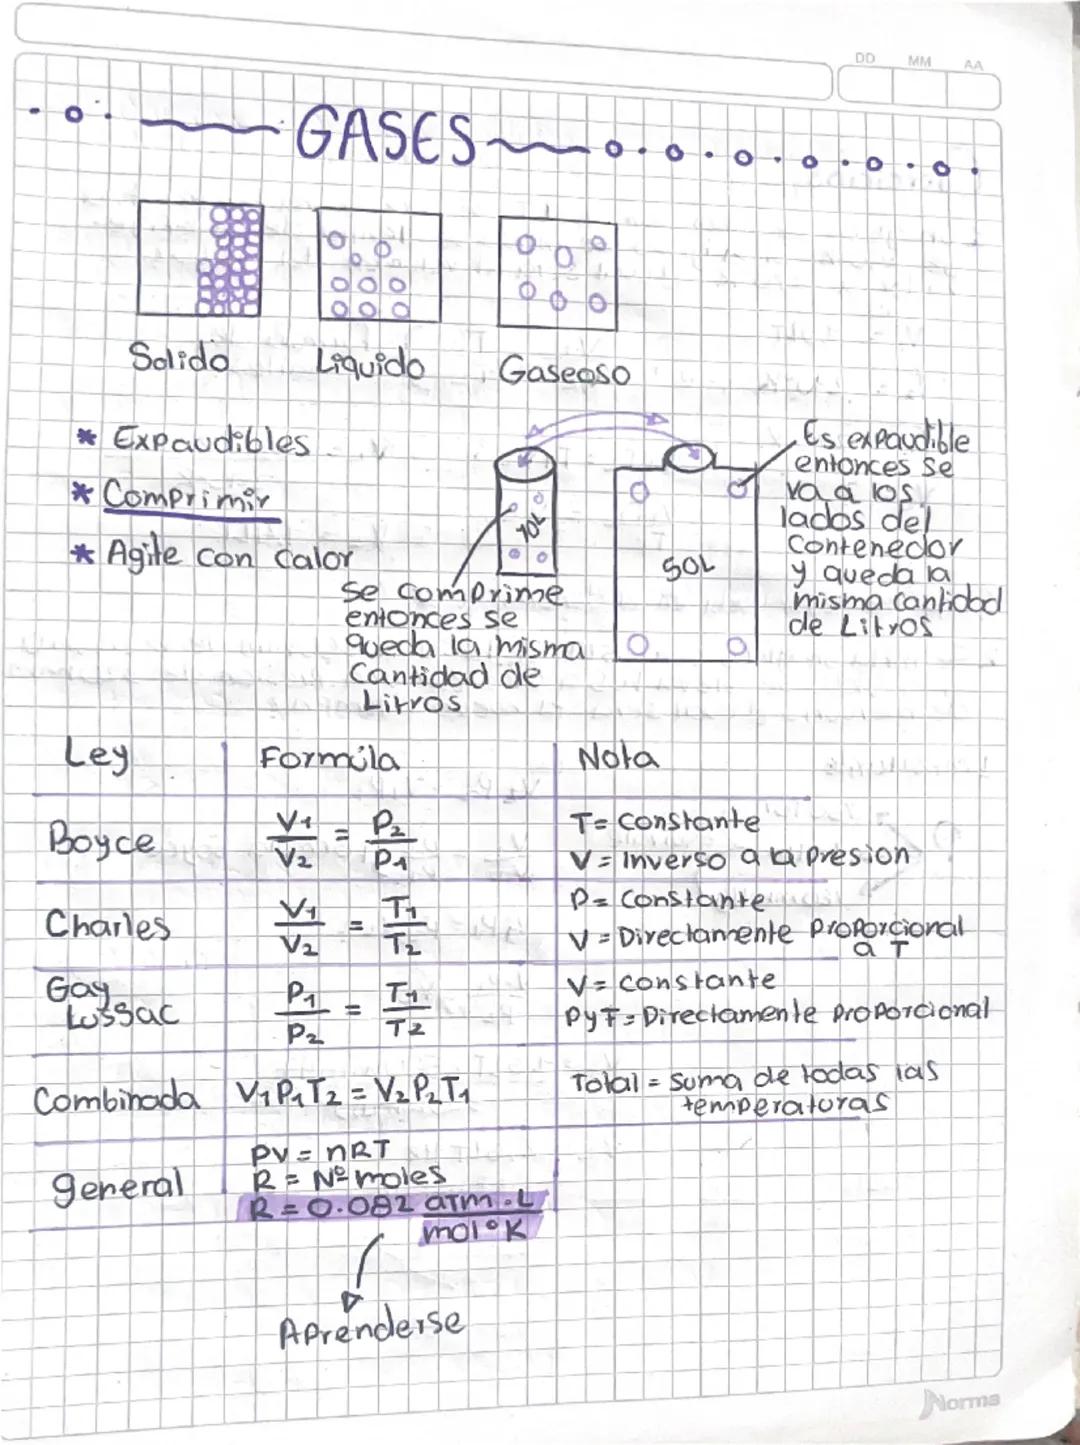 DD MM AA
GASES
Solido Liquido Gaseoso
* Expaudibles
* Comprimir
* Agite con calor
10L
50L
Se comprime
entonces se
queda la misma
Cantidad de
Litros
Es expaudible
entonces se
va a los
lados del
Contenedor
y queda la
misma cantidad
de Litros
Ley Formúla Nota
Boyce V1/V2 = P2/P1 T= constante
V = Inverso a la presion
Charles V1/V2 = T1/T2 P= constante
V = Directamente Proporcional
a T
Gay
Lussac P1/P2 = T1/T2 V= constante
P y T= Directamente Proporcional
Combinada V1P1T2 = V2P2T1 Total = suma de todas las
temperaturas
general PV = nRT
R = Nº moles
R = 0.082 atm.L/mol°K
Aprenderse
Norma